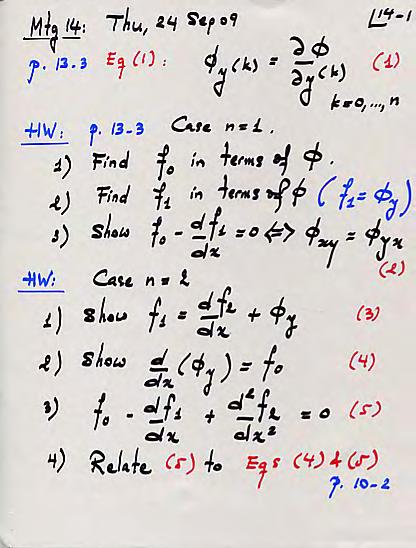 Mtg 14: Thu, 24 Sep 09 14-1
p. 13-3 Eq (1): ϕ_y(k) = ∂ϕ/∂y^(k) (1)
k=0,...,n
HW: p. 13-3 Case n=1.
1) Find f₀ in terms of ϕ.
2) Find f₁ in terms of ϕ (f₁ = ϕ_y)
3) Show f₀ - d/dx f₁ = 0 <=> ϕ_xy = ϕ_yx
(2)
HW: Case n = 2
1) Show f₁ = df₂/dx + ϕ_y (3)
2) Show d/dx (ϕ_y) = f₀ (4)
3) f₀ - df₁/dx + d²f₂/dx² = 0 (5)
4) Relate (5) to Eqs (4) & (5)
p. 10-2